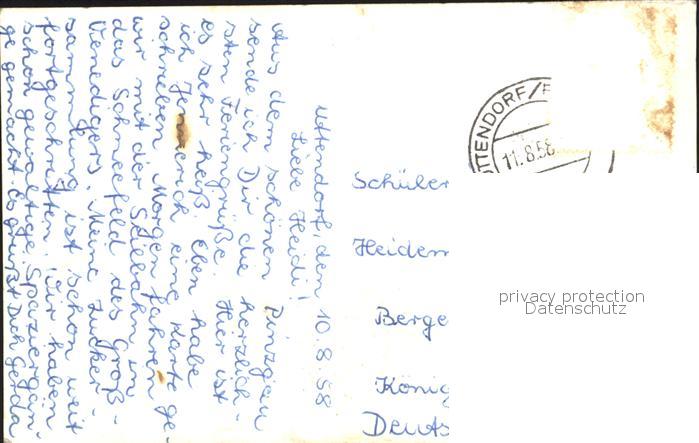 Uttendorf, den 10.8.58
Liebe Heidi!
Aus dem schönen Pinzgau
sende ich Dir die herzlich-
sten Feriengrüße. Hier ist
es sehr heiß. Eben habe
ich Jennerich eine Karte ge-
schrieben. Morgen fahren
wir mit der Seilbahn in
das Schneefeld des Groß-
Venedigers. Meine Zucker-
sammlung ist schon weit
fortgeschritten. Wir haben
schon gewaltige Spaziergän-
ge gemacht. Es grüßt Dich Gerda
UTTENDORF/P
11.8.58
Schüler
Heidem
Berge
König
Deuts
privacy protection
Datenschutz